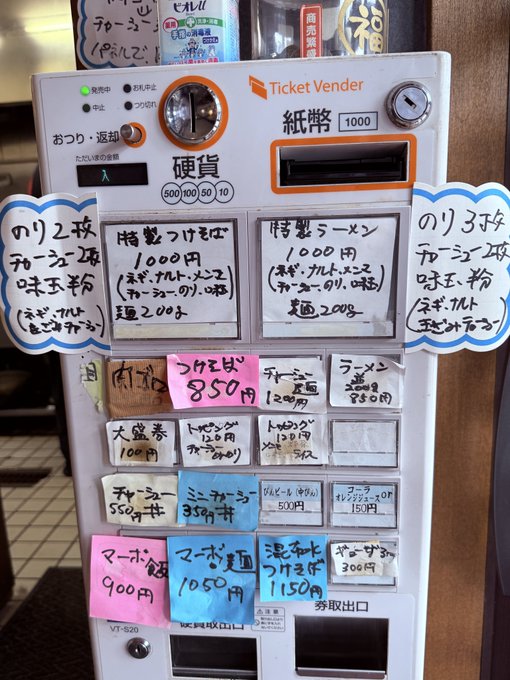 チャーシュー
ビオレu
手指の消毒液
商売繁盛
福
発売中
お札中止
中止
つり切れ
Ticket Vender
おつり・返却
ただいまの金額
入
硬貨
500 100 50 10
紙幣
1000
のり2枚
チャーシュー2枚
味玉粉
(ネギ、ナルト
特製つけそば
1000円
(ネギ、ナルト、メンマ
チャーシュー、のり、味玉)
麺200g
特製ラーメン
1000円
(ネギ、ナルト、メンマ
チャーシュー、のり、味玉)
麺200g
のり3枚
チャーシュー2枚
味玉粉
(ネギ、ナルト
肉
つけそば
850円
チャーシュー
麺
1200円
ラーメン
200g
850円
大盛券
100円
トッピング
120円
トッピング
120円
メンマ
ライス
チャーシュー
550円丼
ミニチャーシュー
350円丼
びんビール(中びん)
500円
コーラor
オレンジジュース
150円
マーボー飯
900円
マーボー麺
1050円
昆布水
つけそば
1150円
ギョーザ3ヶ
300円
VT-S20
硬貨取出口
注意
券取出口